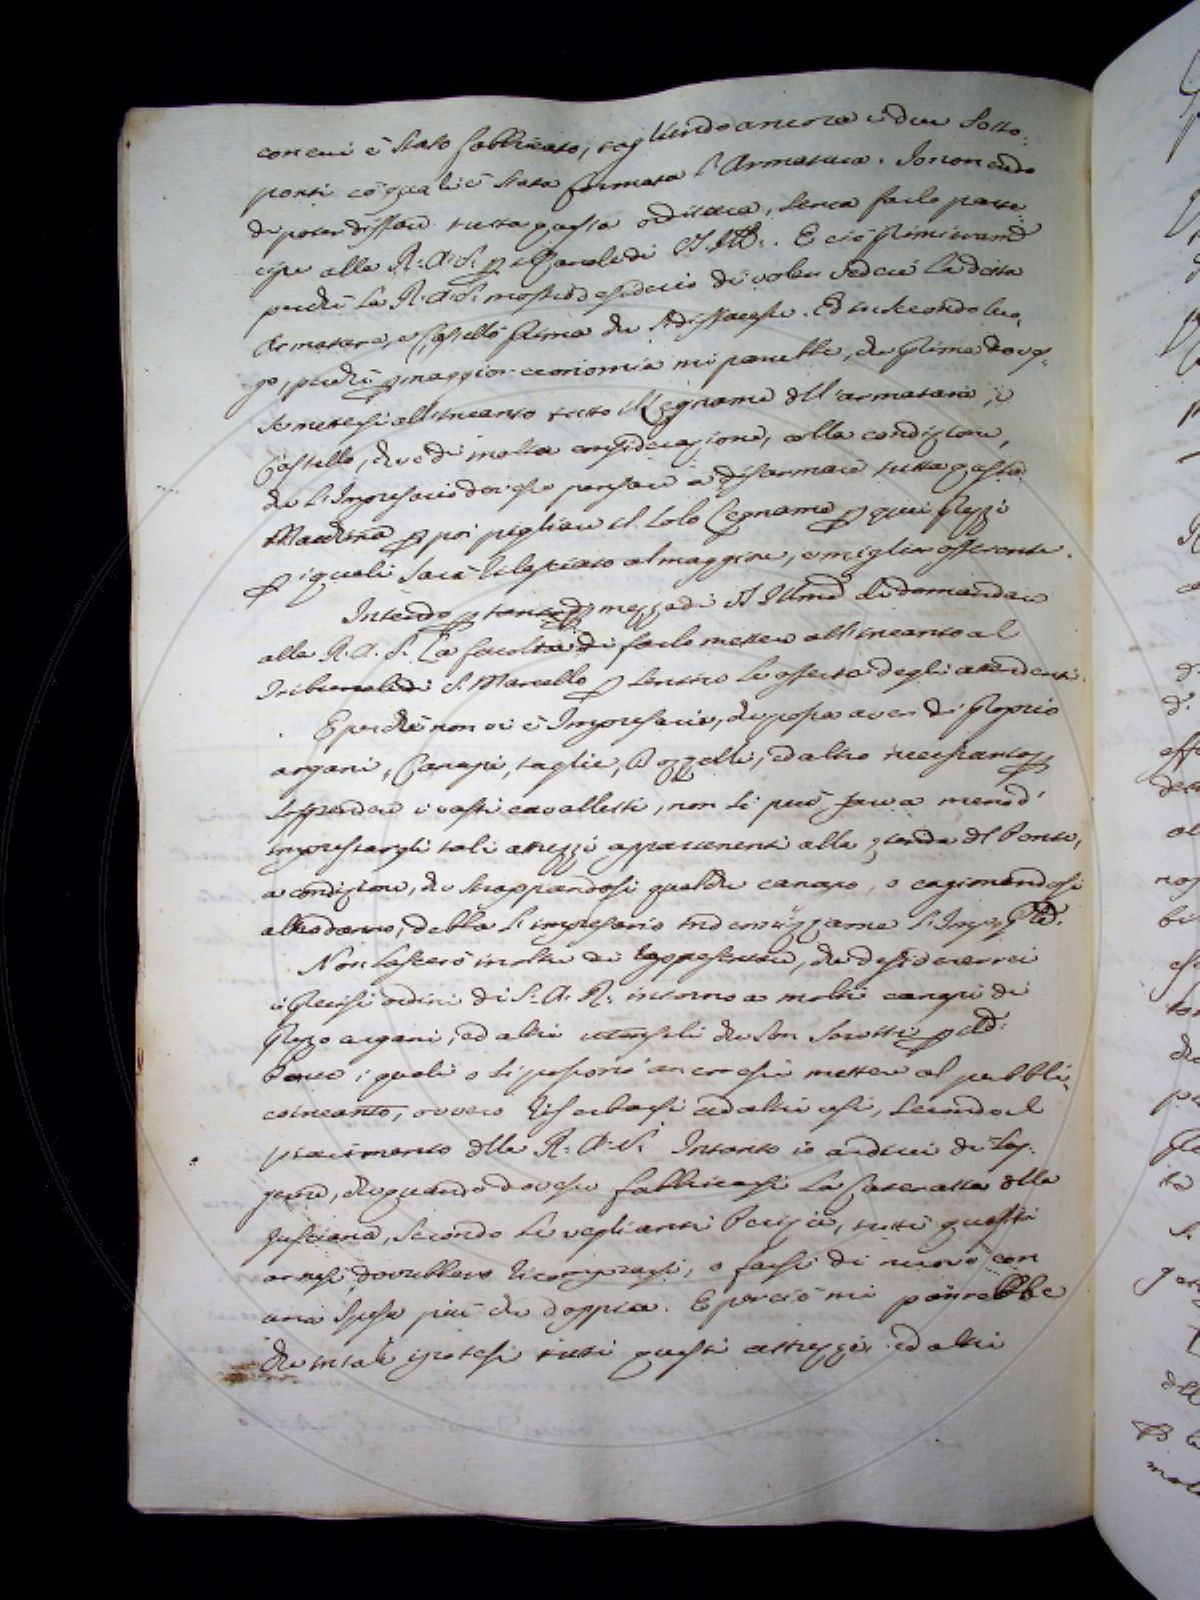 con cui è stato fabbricato, togliendo ancora i due sotto-
ponti co' quali è stata formata l'Armatura. Io non credo
di poter disfare tutta questa orditura, senza farlo parte-
cipe alla R. A. S. p. di V. S. Ill. E ciò primieram.
perché la R. A. S. mostrò desiderio di voler vedere la detta
Armatura, e Castello prima di disfacersi. Ed in secondo luo-
go, perché p. maggior economia mi parrebbe, che prima dov.
se mettersi all'incanto tutto il Legname dell'armatura, e
Castello, che è di molta considerazione, colla condizione,
che l'Impresario dovesse pensare a disarmare tutta questa
Macchina p. poi pigliare il solo Legname p. quei prezzi
p. i quali sarà rilasciato al maggiore, e miglior offerente.
Intendo p. tanto p. mezzo di V. S. Illma di domandare
alla R. A. S. la facoltà di farlo mettere all'incanto al
Tribunale di S. Marcello p. sentire le offerte degli attendenti.
E perché non vi è Impresario, che possa aver di proprio
argani, Canapi, taglie, Bozzelli, ed altro necessario p.
sospendere i vasti cavalletti, non si può far a meno d'
imprestargli tali attrezzi appartenenti alla azienda del Ponte,
a condizione, che strappandosi qualche canapo, o cagionandosi
altro danno, debba l'impresario indennizzarne l'Imp.
Non lascerò inoltre di rappresentare, che desidererei
i precisi ordini di S. A. R. intorno a molti canapi di
prezzo argani, ed altri utensili che son serviti p. il d.
Ponte, i quali o si possono ancor essi mettere al pubbli-
co incanto, ovvero riserbarsi ad altri usi, secondo il
piacimento della R. A. S. Intanto io ardirei di sog-
gerire, che quando dovesse fabbricarsi la Cateratta della
Gusciana, secondo le veglianti Perizie, tutti questi
arnesi dovrebbero ricomprarsi, o farsi di nuovo con
una spesa più che doppia. E perciò mi parrebbe
che in tale ipotesi tutti questi attrezzi, ed altri